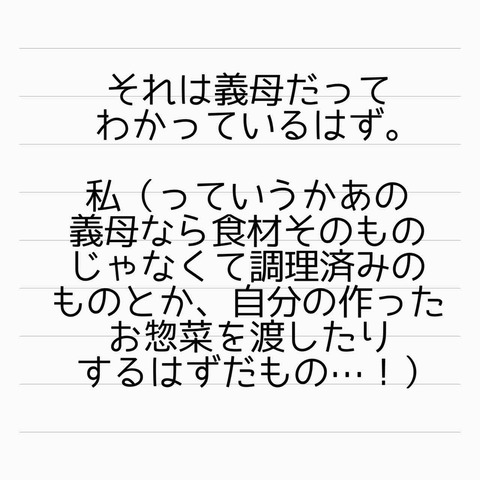 それは義母だって
わかっているはず。
私（っていうかあの
義母なら食材そのもの
じゃなくて調理済みの
ものとか、自分の作った
お惣菜を渡したり
するはずだもの…！）